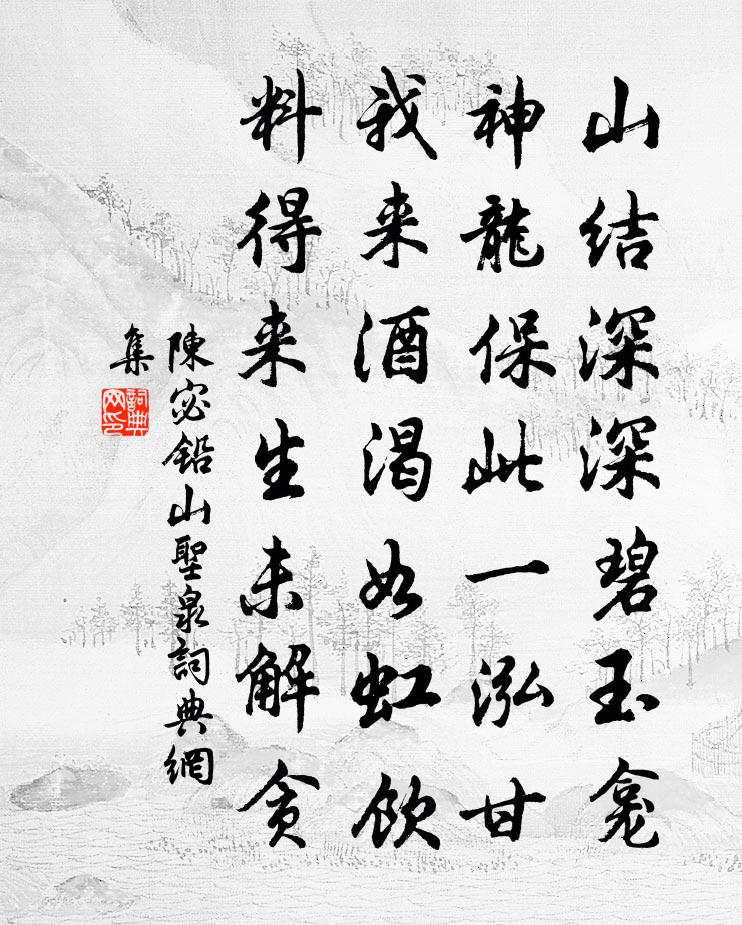 山结深深碧玉龛
神龍保此一泓甘
我来酒渴如虹饮
料得来生未解贪
陳宓鉛山聖泉詞典網
集
詞典
网印